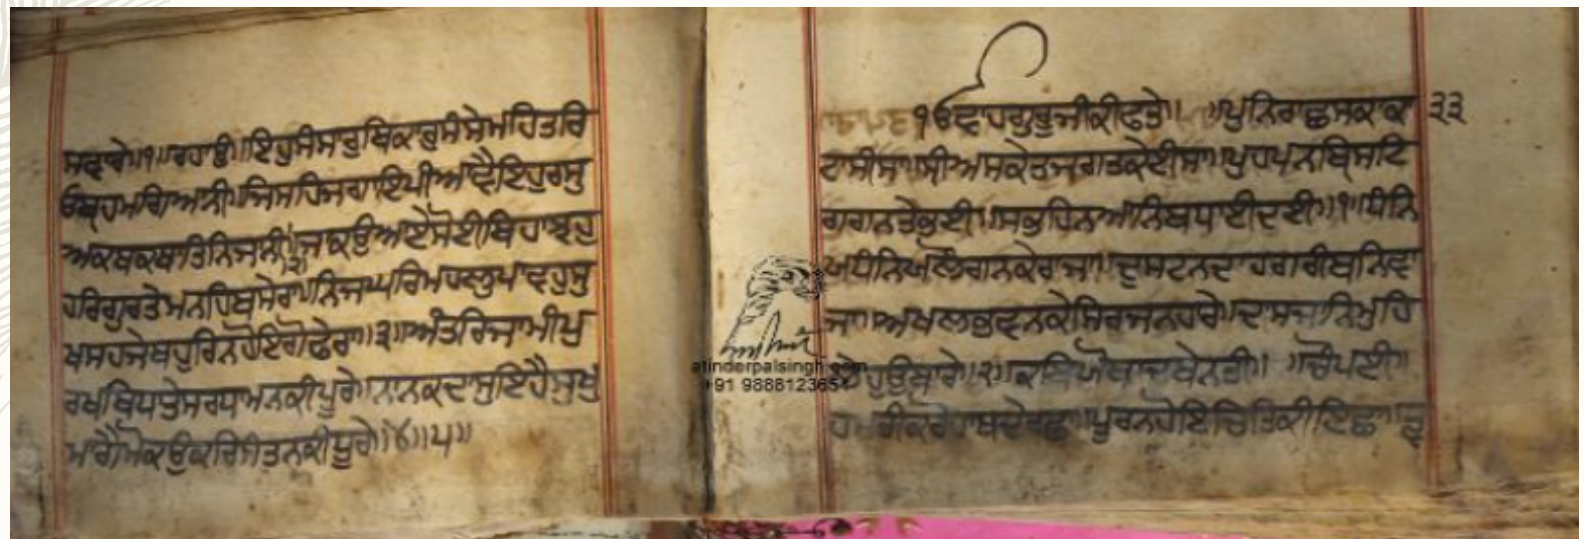 ਸਵਾਰੇ॥੧॥ਰਹਾਉ॥ਇਹੁਸੰਸਾਰੁਬਿਕਾਰੁਸੰਸੇਮਹਿਤਰਿ
ਓਬ੍ਰਹਮਗਿਆਨੀ॥ਜਿਸਹਿਜਗਾਇਪੀਆਵੈਇਹੁਰਸੁ
ਅਕਥਕਥਾਤਿਨਿਜਾਨੀ॥੨॥ਜਾਕਉਆਏਸੋਈਬਿਹਾਝਹੁ
ਹਰਿਗੁਰਤੇਮਨਹਿਬਸੇਰਾ॥ਨਿਜਘਰਿਮਹਲੁਪਾਵਹੁਸੁ
ਖਸਹਜੇਬਹੁਰਿਨਹੋਇਗੋਫੇਰਾ॥੩॥ਅੰਤਰਿਜਾਮੀਪੁ
ਰਖਬਿਧਾਤੇਸਰਧਾਮਨਕੀਪੂਰੇ॥ਨਾਨਕਦਾਸੁਇਹੈਸੁਖੁ
ਮਾਗੈਮੋਕਉਕਰਿਸੰਤਨਕੀਧੂਰੇ॥੪॥੫॥
੧ਓਵਾਹਗੁਰੂਜੀਕੀਫਤੇ॥ ॥ਪੁਨਿਰਾਛਸਕਾਕਾ ੩੩
ਟਾਸੀਸਾ॥ਸ੍ਰੀਅਸਕੇਤਜਗਤਕੇਈਸਾ॥ਪੁਹਪਨਬ੍ਰਿਸਟਿ
ਗਗਨਤੇਭਈ॥ਸਭਹਿਨਆਨਿਬਧਾਈਦਈ॥੧॥ਧੰਨਿ
ਯਧੰਨਿਯਲੋਗਨਕੇਰਾਜਾ॥ਦੁਸਟਨਦਾਹਗਰੀਬਨਿਵਾ
ਜਾ॥ਅਖਲਭਵਨਕੇਸਿਰਜਨਹਾਰੇ॥ਦਾਸਜਾਨਿਮੁਹਿ
ਲੇਹੁਉਬਾਰੇ॥੨॥ਕਬਿਯੋਬਾਚਬੇਨਤੀ॥ ॥ਚੌਪਈ॥
ਹਮਰੀਕਰੋਹਾਥਦੇਰਛਾ॥ਪੂਰਨਹੋਇਚਿਤਕੀਇਛਾ॥ਤ੍ਵ
atinderpalsingh.com
+91 9888123654